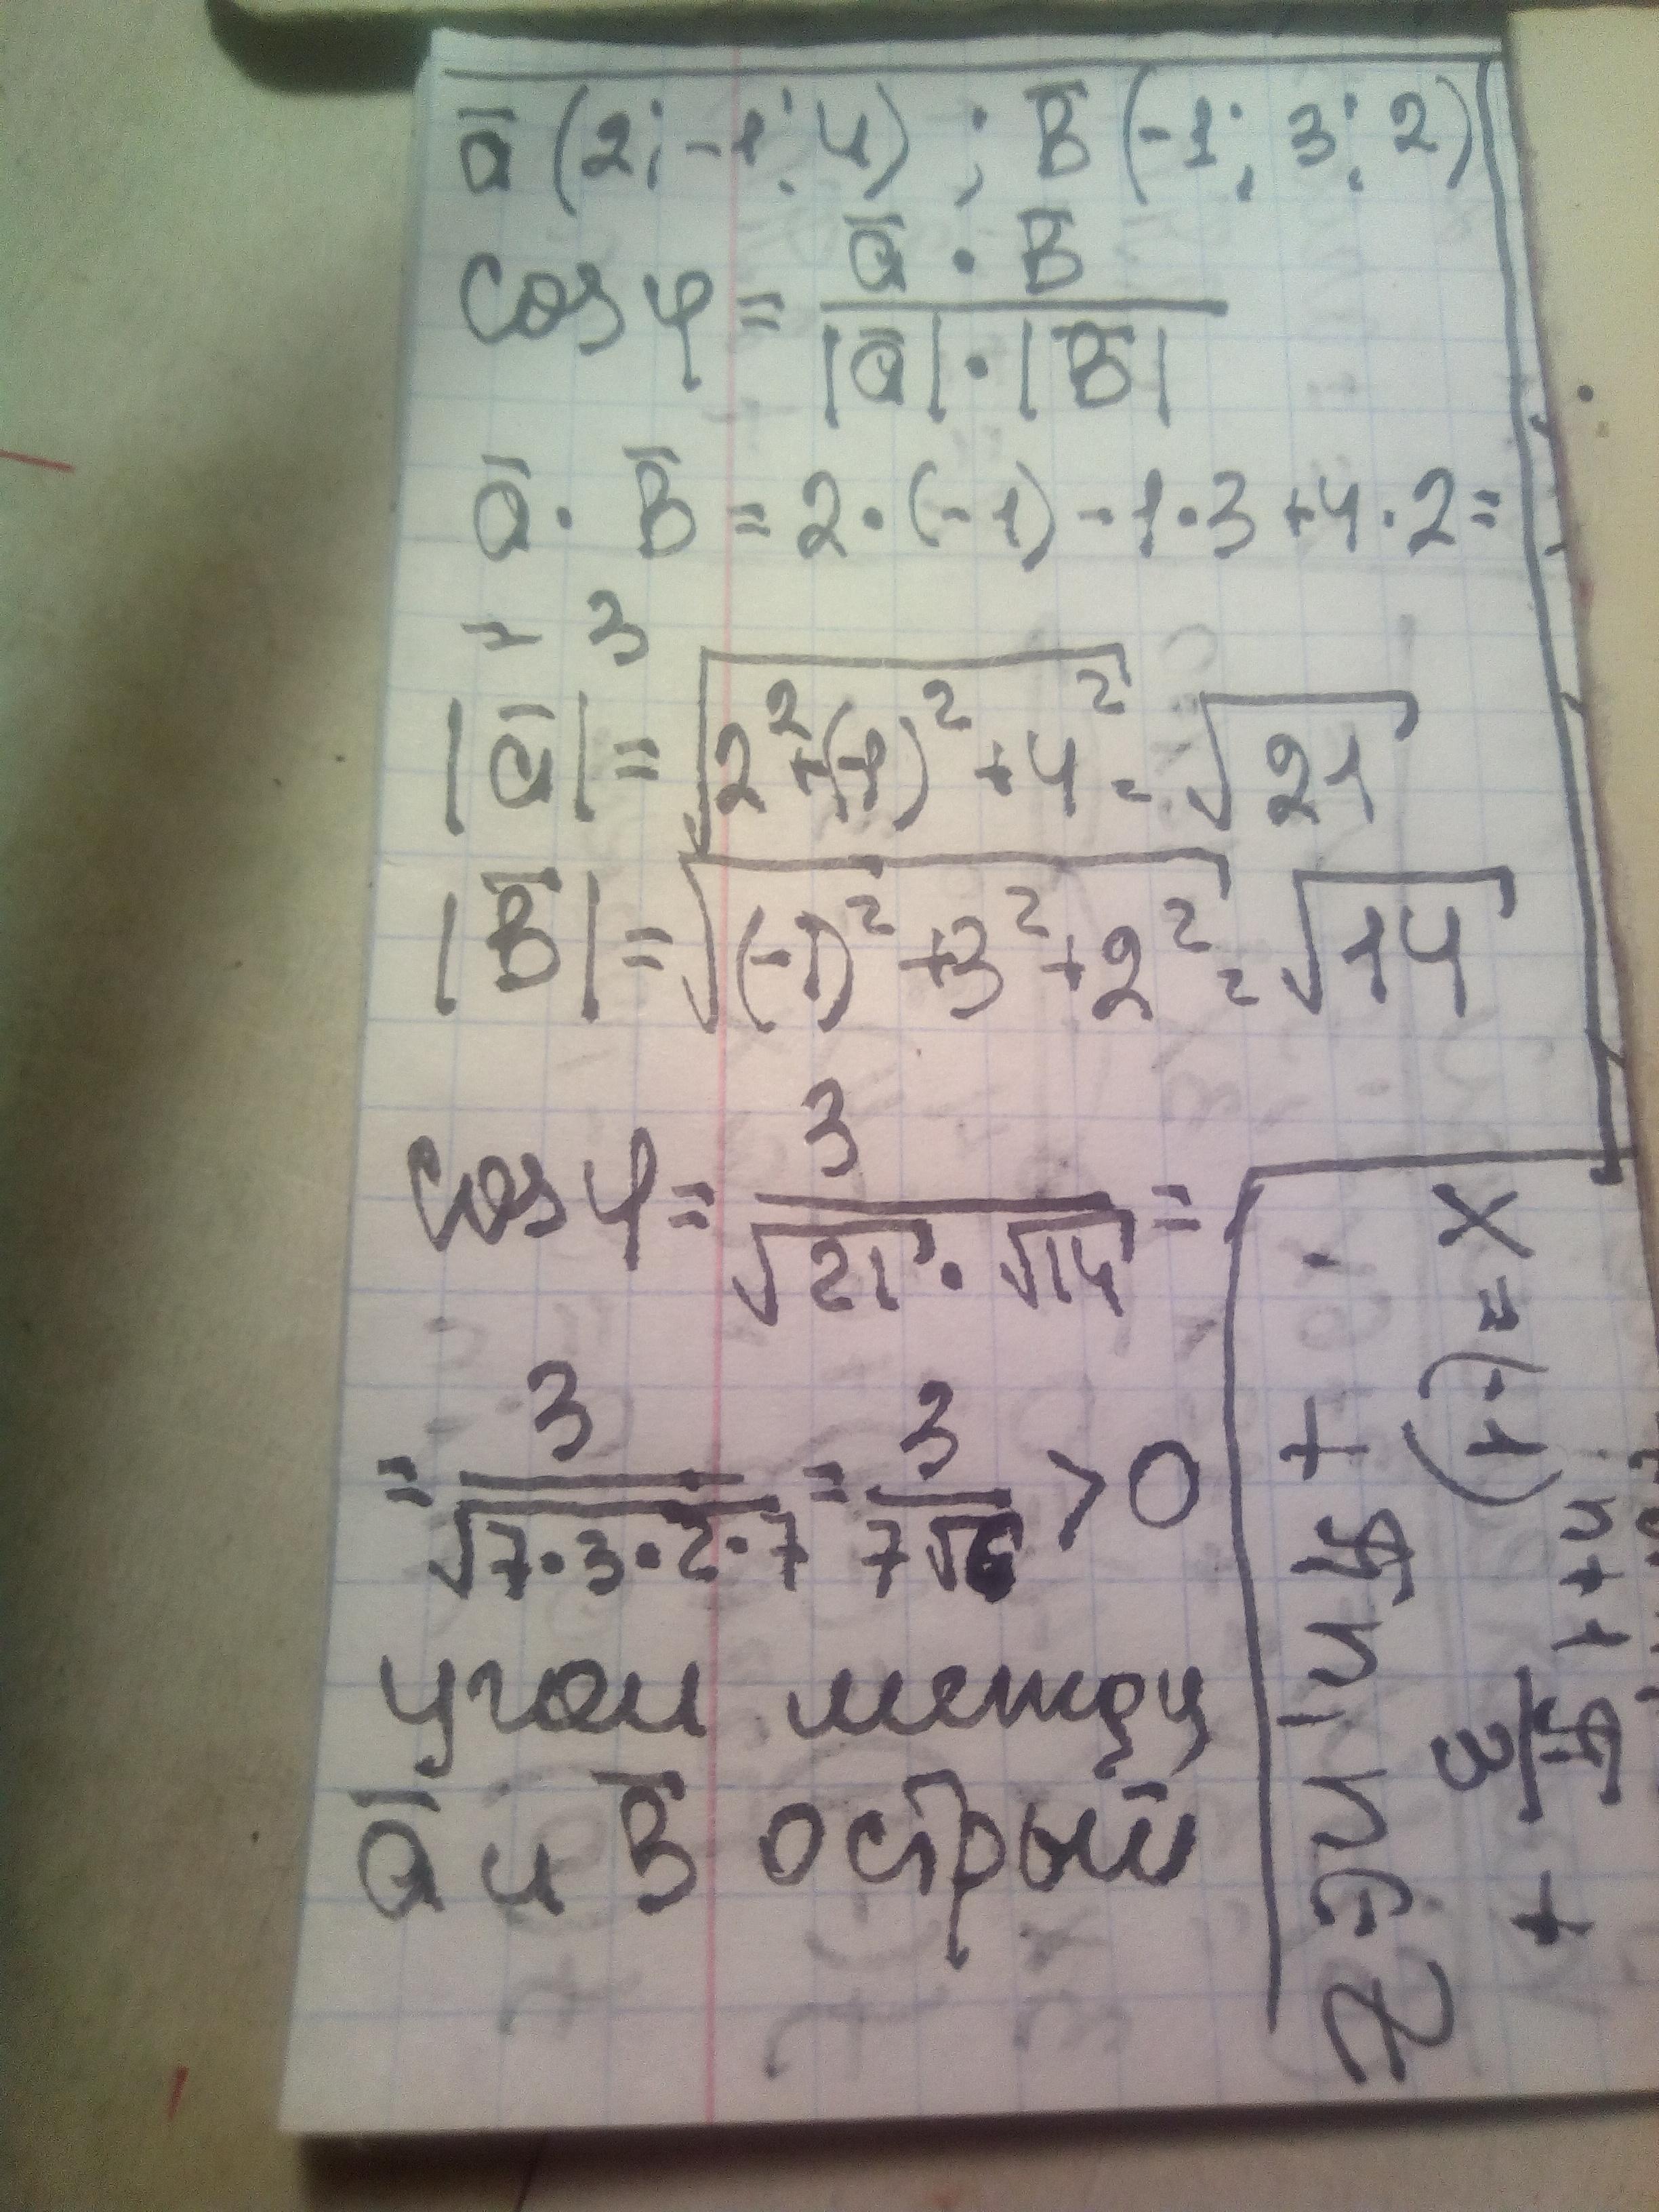 ā (2; -1; 4) ; B̄ (-1; 3; 2)
cos φ = (ā · B̄) / (|ā| · |B̄|)
ā · B̄ = 2 · (-1) - 1 · 3 + 4 · 2 =
= 3
|ā| = √(2² + (-1)² + 4²) = √21
|B̄| = √((-1)² + 3² + 2²) = √14
cos φ = 3 / (√21 · √14) =
= 3 / √(7·3·2·7) = 3 / (7√6) > 0
угол между
ā и B̄ острый